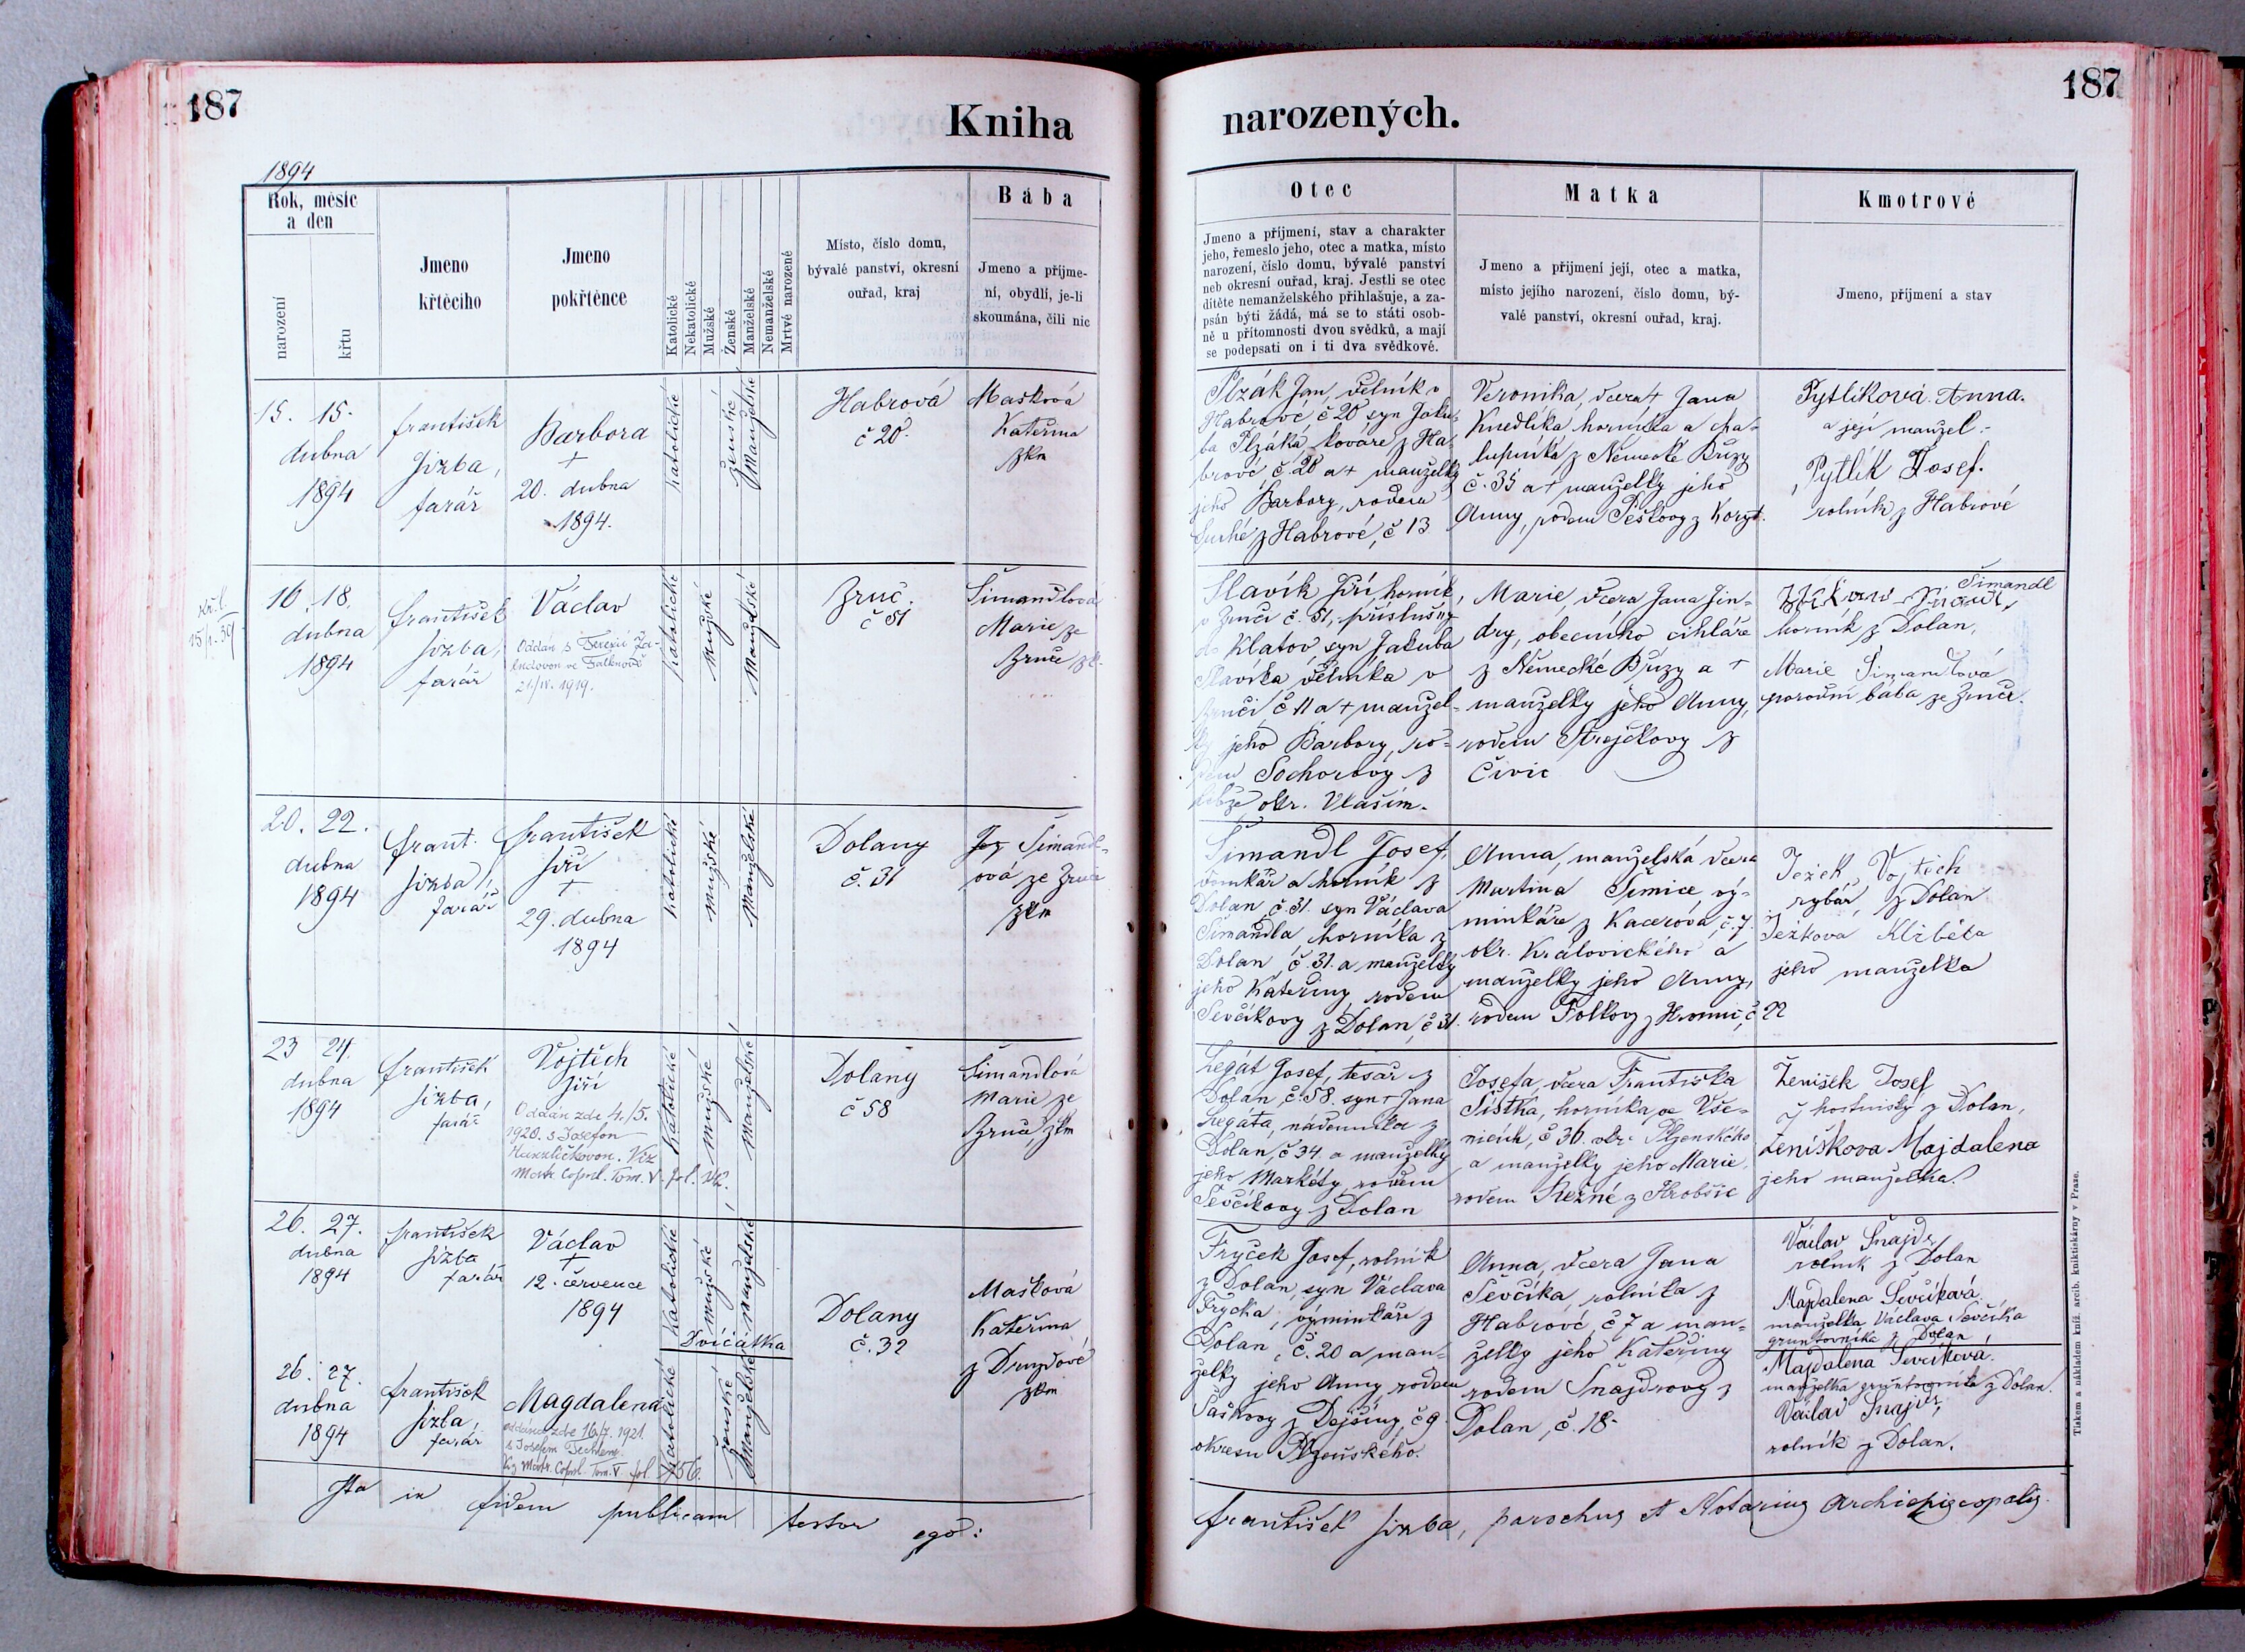 187
187
Kniha
narozených.
1894
Rok, měsíc
a den
narození
křtu
Jmeno
křtěcího
Jmeno
pokřtěnce
Katolické
Nekatolické
Mužské
Ženské
Manželské
Nemanželské
Mrtvé narozené
Místo, číslo domu,
bývalé panství, okresní
ouřad, kraj
Bába
Jmeno a příjme-
ní, obydlí, je-li
skoumána, čili nic
Otec
Jmeno a příjmení, stav a charakter
jeho, řemeslo jeho, otec a matka, místo
narození, číslo domu, bývalé panství
neb okresní ouřad, kraj. Jestli se otec
dítěte nemanželského přihlašuje, a za-
psán býti žádá, má se to státi osob-
ně u přítomnosti dvou svědků, a mají
se podepsati on i ti dva svědkové.
Matka
Jmeno a přijmení její, otec a matka,
místo jejího narození, číslo domu, bý-
valé panství, okresní ouřad, kraj.
Kmotrové
Jmeno, příjmení a stav
15. 15.
dubna
1894
František
Jizba,
farář
Barbora
+
20. dubna
1894.
katolické
ženské
Manželské
Habrová
č 20.
Mašková
Kateřina
zkn
Plzák Jan, dělník v
Habrové č 20 syn Jaku-
ba Plzáka, kováře z Ha-
brové č. 20 a + manželky
jeho Barbory, rodem
Suché z Habrové, č 13
Veronika, dcera + Jana
Knedlíka horníka a cha-
lupníka z Německé Břízy
č. 35 a + manželky jeho
Anny, rodem Peškovy z Koryt.
Pytlíková Anna.
a její manžel:
Pytlík Josef.
rolník z Habrové
16. 18.
dubna
1894
František
Jizba,
farář
Václav
Oddán s Terezií
ve Falknově
21/IV. 1919.
katolické
mužské
Manželské
Zruč.
č 51
Šimandlová
Marie ze
Zruče zk.
Slavík Jiří, horník,
v Zruči č. 51, příslušný
do Klatov, syn Jakuba
Slavíka dělníka v
Zruči, č 11 a + manžel-
ky jeho Barbory, ro-
dem Sochorovy z
okr. Vlašim.
Marie, dcera Jana Jin-
dry, obecního cihláře
z Německé Břízy a +
manželky jeho Anny,
rodem Strejčkovy z
Čivic
Šimandl
horník z Dolan,
Marie Šimandlová
porodní bába ze Zruče.
20. 22.
dubna
1894
Frant.
Jizba,
farář
František
Jiří
+
29. dubna
1894
katolické
mužské
Manželské
Dolany
č. 31
Šimandl-
ová ze Zruče
zkn
Šimandl Josef,
domkář a horník z
Dolan č. 31. syn Václava
Šimandla, horníka z
Dolan č. 31. a manželky
jeho Kateřiny, rodem
Ševčíkovy z Dolan, č 31.
Anna, manželská dcera
Martina Šimice vý-
minkáře z Kacerova, č. 7.
okr. Kralovického a
manželky jeho Anny,
rodem Folkovy z Hromic, č 22
Ježek Vojtěch
rybář, z Dolan
Ježkova Alžběta
jeho manželka
23 24.
dubna
1894
František
Jizba,
farář
Vojtěch
Jiří
Oddán zde 4./5.
1920. s Josefou
Viz
Matr. Copul. Tom. V. fol.
katolické
mužské
manželské
Dolany
č 58
Šimandlová
Marie ze
Zruče, zkn
Legát Josef, tesař z
Dolan, č. 58. syn + Jana
Legáta, nádenníka z
Dolan, č 34. a manželky
jeho Markéty, rodem
Ševčíkovy z Dolan
Josefa, dcera Františka
Šístka, horníka ze Vše-
nic, č 36. okr. Plzenského
a manželky jeho Marie,
rodem Režné z
Ženíšek Josef
hostinský z Dolan,
Ženíškova Majdalena
jeho manželka.
26. 27.
dubna
1894
František
Jizba
farář
Václav
+
12. července
1894
katolické
mužské
manželské
Dvíčátka
Dolany
č. 32
Mašková
Kateřina
z Druzdové
zkn
Fryček Josef, rolník
z Dolan, syn Václava
Fryčka, výminkáře z
Dolan, č. 20 a man-
želky jeho Anny rodem
Šaškovy z Dejšiny, č 9.
okresu Plzeňského.
Anna, dcera Jana
Ševčíka, rolníka z
Habrové č 7 a man-
želky jeho Kateřiny
rodem Šnajdrovy z
Dolan, č. 18.
Václav Šnajdr
rolník z Dolan
Majdalena Ševčíková.
manželka Václava Ševčíka
gruntovníka z Dolan
26. 27.
dubna
1894
František
Jizba,
farář
Magdalena
oddána zde 16/7. 1921.
s Josefem
Matr. Copul. Tom. V fol. 156.
katolické
ženské
Manželské
Majdalena Ševčíková.
manželka gruntovníka z Dolan.
Václav Šnajdr,
rolník z Dolan.
Ita in fidem publicam testor ego:
František Jizba, parochus et Notarius Archiepiscopalis.
Tiskem a nákladem kníž. arcib. knihtiskárny v Praze.